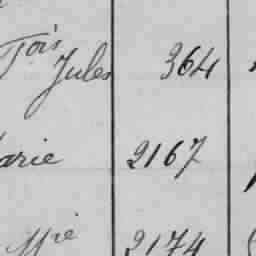 Fois
Jules 364
arie 2167
2174